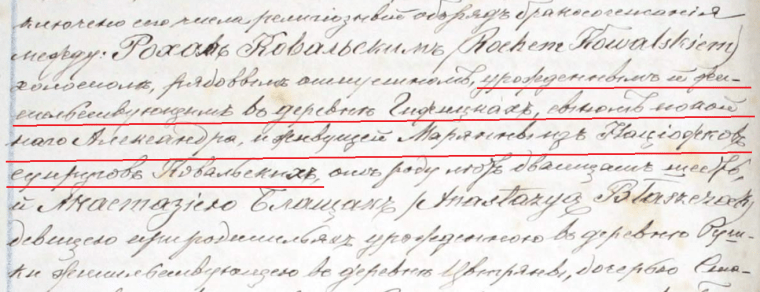 ключено сего числа религіозный обрядъ бракосочетанія
между: Рохомъ Ковальскимъ (Rochem Kowalskiem)
холостымъ, рядовымъ отпускнымъ, урожденнымъ и жи-
тельствующимъ въ деревнѣ сыномъ покой
наго Александра, и живущей Маріанны изъ
супруговъ Ковальскихъ, отъ роду лѣтъ двадцать шесть,
и Анастазіею Блащакъ (Anastazyą Błaszczak)
дѣвицею при родителяхъ урожденною въ деревнѣ
ки жительствующею въ деревнѣ дочерью Ста-